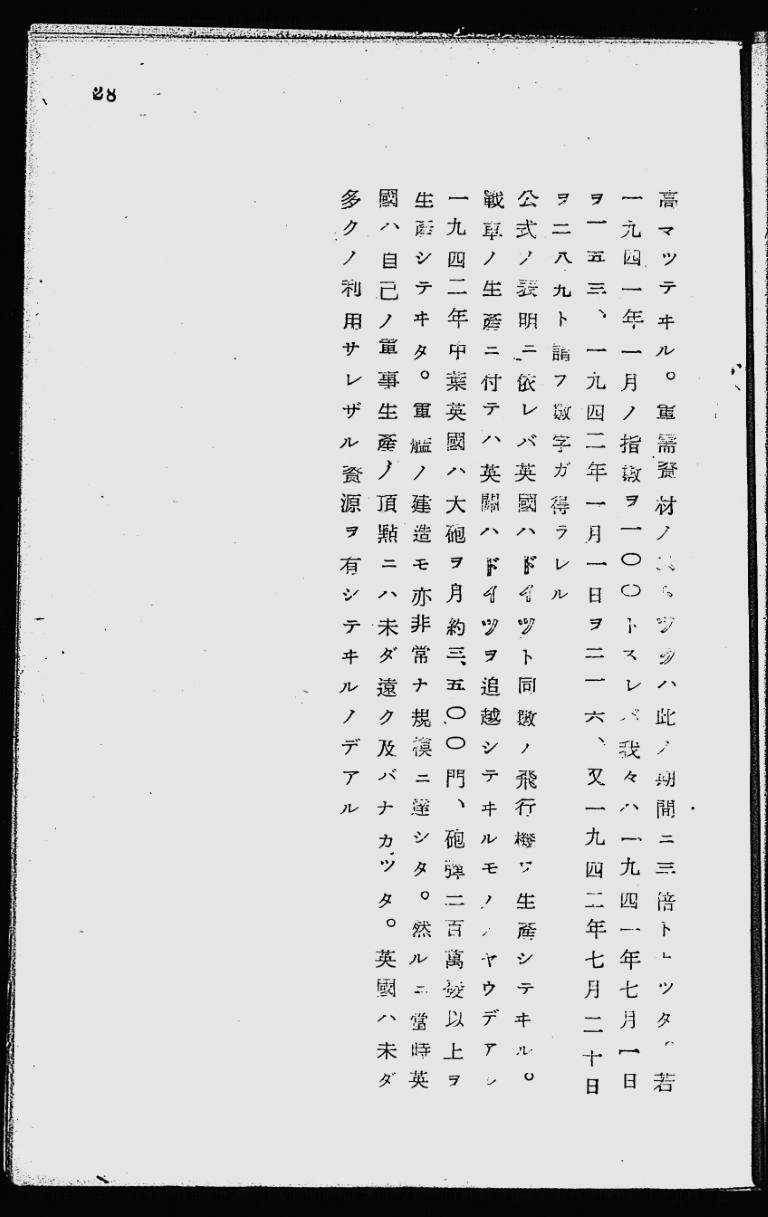 高マツテヰル。軍需資材ノツクハ此ノ期間ニ三倍トツタ 若
一九四一年一月ノ指数ヲ一〇〇トスレバ我々ハ一九四一年七月一日
ヲ一五三、一九四二年一月一日ヲ二一六、又一九四二年七月二十日
ヲ二八九ト謂フ数字ガ得ラレル
公式ノ表明ニ依レバ英國ハドイツト同数ノ飛行機ヲ生產シテヰル。
戰車ノ生產ニ付テハ英國ハドイツヲ追越シテヰルモノノヤウデアル
一九四二年中葉英國ハ大砲ヲ月約三、五〇〇門、砲彈二百萬發以上ヲ
生產シテヰタ。軍艦ノ建造モ亦非常ナ規模ニ達シタ。然ルニ當時英
國ハ自己ノ軍事生產ノ頂點ニハ未ダ遠ク及バナカツタ。英國ハ未ダ
多クノ利用サレザル資源ヲ有シテヰルノデアル
28